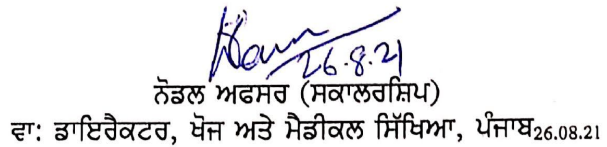 26.8.21
ਨੋਡਲ ਅਫਸਰ (ਸਕਾਲਰਸ਼ਿਪ)
ਵਾ: ਡਾਇਰੈਕਟਰ, ਖੋਜ ਅਤੇ ਮੈਡੀਕਲ ਸਿੱਖਿਆ, ਪੰਜਾਬ26.08.21